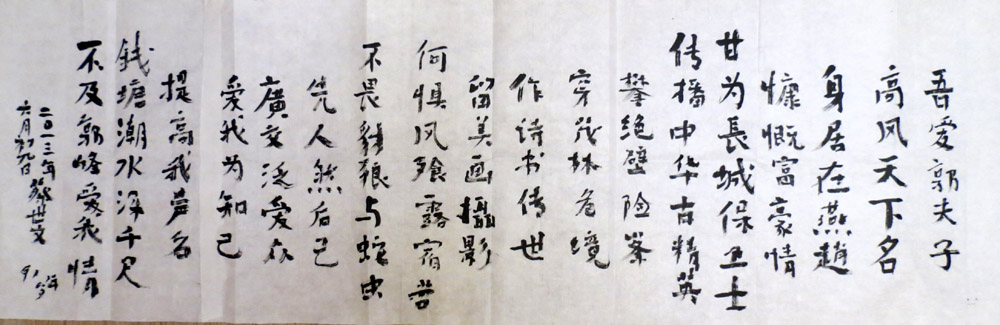 吾爱郭夫子
高风天下名
身居在燕趙
慷慨富豪情
甘为長城保卫士
传播中华古精英
攀绝壁险峯
穿茂林危境
作诗书传世
留美画攝影
何惧风飱露宿苦
不畏豺狼与蛇虫
先人然后己
廣交泛爱众
爱我为知己
提高我声名
錢塘潮水深千尺
不及郭峰爱我情
二〇一三年
六月初九日
蔡世文
91岁